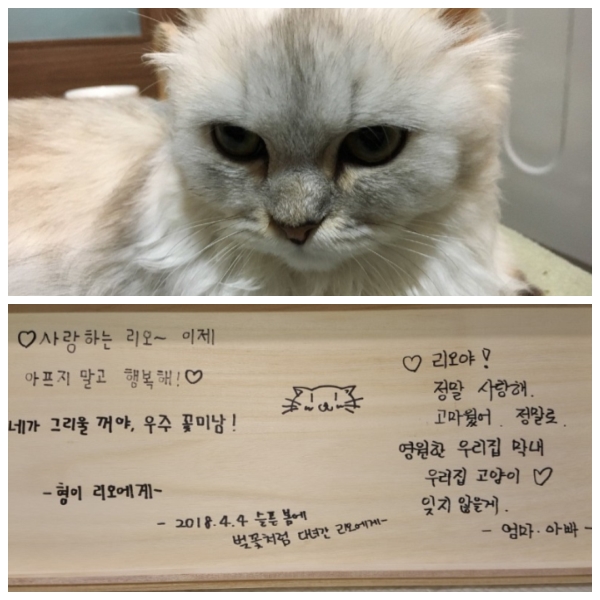 ♡사랑하는 리오~ 이제
아프지 말고 행복해!♡
네가 그리울 꺼야, 우주 꽃미남!
-형이 리오에게-
- 2018.4.4 슬픈 봄에
벚꽃처럼 다녀간 리오에게-
♡ 리오야!
정말 사랑해.
고마웠어. 정말로.
영원한 우리집 막내
우리집 고양이 ♡
잊지 않을게.
- 엄마·아빠 -